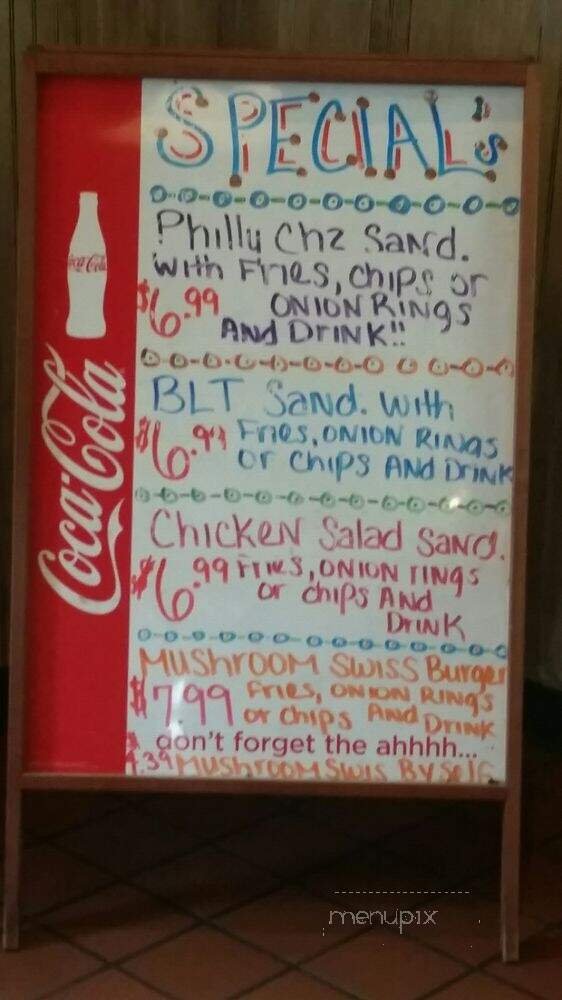 SPECIAL's
Philly Chz Sand.
with Fries, chips or
$6.99 ONION Rings
AND DRINK!!
BLT Sand. with
$6.99 Fries, ONION RINGS
or chips AND DRINK
Chicken Salad Sand.
$6.99 Fries, ONION rings
or chips AND
DRINK
MUSHROOM SWISS Burger
$7.99 Fries, ONION RINGS
or chips AND DRINK
don't forget the ahhhh...
4.39 MUSHROOM SWIS By Self
Coca-Cola
Coca-Cola
menupix